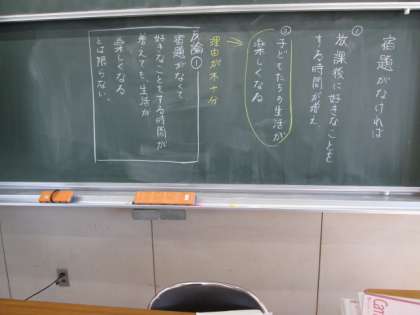 宿題がなければ
①
放課後に好きなことを
する時間が増え
②
子どもたちの生活が
楽しくなる
理由が不十分
反論①
宿題がなくて
好きなことをする時間が
増えても、生活が
楽しくなる
とは限らない。
Cam